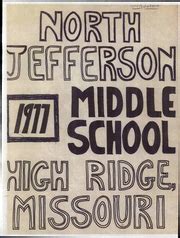 NORTH
JEFFERSON
1977 MIDDLE
SCHOOL
HIGH RIDGE,
MISSOURI